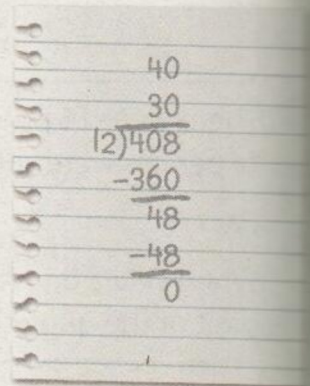 40
30
12)408
-360
48
-48
0